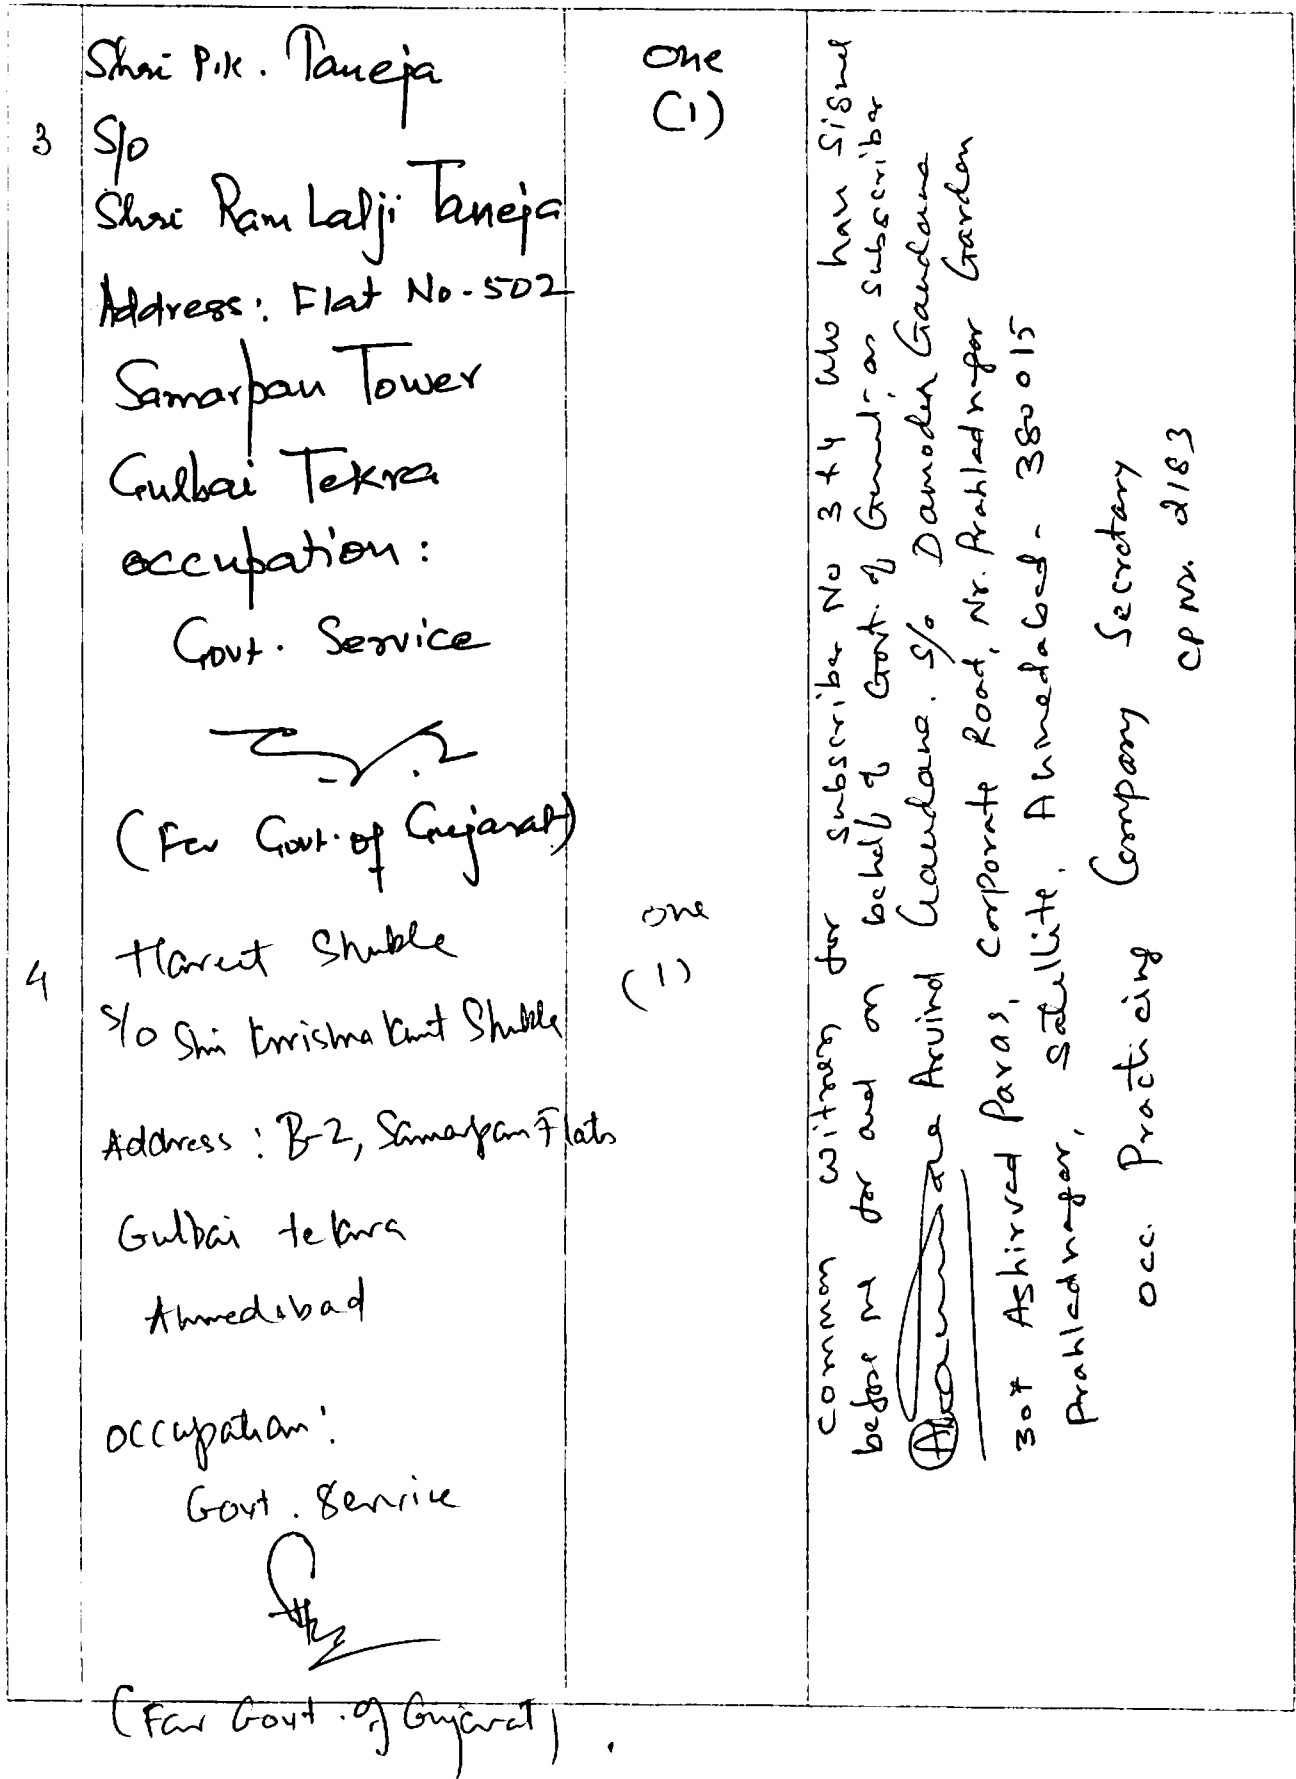 3
Shri P.K. Taneja
S/o
Shri Ram Lalji Taneja
Address: Flat No-502
Samarpan Tower
Gulbai Tekra
occupation:
Govt. Service
(For Govt. of Gujarat)
one
(1)
4
Hareet Shukla
S/o Shri Krrishna Kant Shukla
Address: B-2, Samarpan Flats
Gulbai tekra
Ahmedabad
occupation:
Govt. Service
(For Govt. of Gujarat)
one
(1)
common witness for subscriber No 3 + 4 who have signed
before me for and on behalf of Govt. of Gujarat as subscriber
Arvind Gaudana. S/o Damodar Gaudana
307 Ashirvad Paras, Corporate Road, Nr. Prahladnagar Garden
Prahladnagar, Satellite, Ahmedabad - 380015
occ. Practicing Company Secretary
CP No. 2183